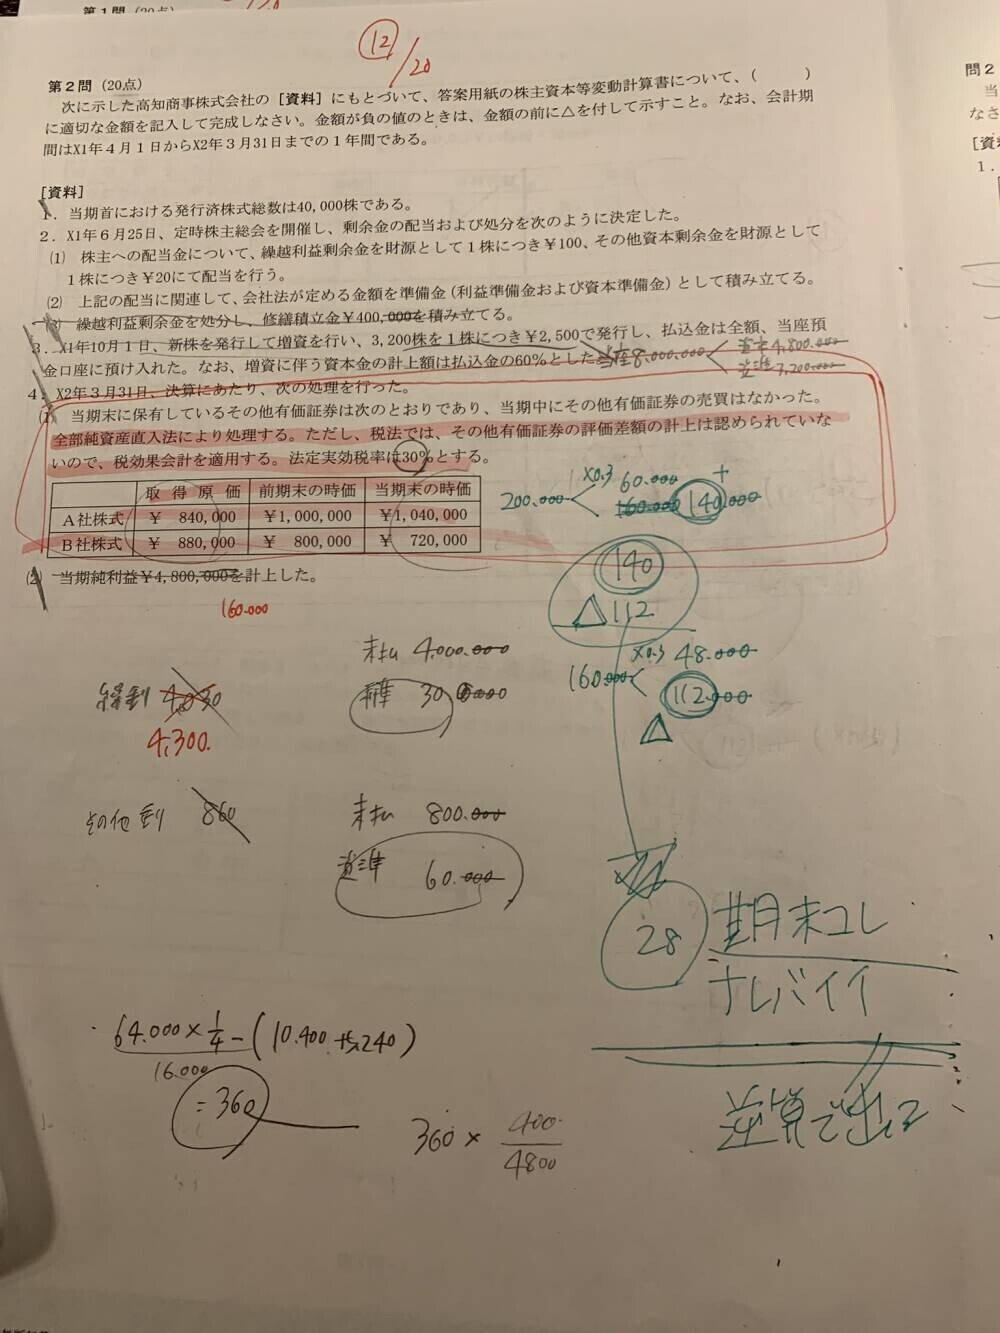 第1問 (20点)
12/20
第2問 (20点)
次に示した高知商事株式会社の[資料]にもとづいて、答案用紙の株主資本等変動計算書について、(　　)
に適切な金額を記入して完成しなさい。金額が負の値のときは、金額の前に△を付して示すこと。なお、会計期
間はX1年4月1日からX2年3月31日までの1年間である。
[資料]
1. 当期首における発行済株式総数は40,000株である。
2. X1年6月25日、定時株主総会を開催し、剰余金の配当および処分を次のように決定した。
(1) 株主への配当金について、繰越利益剰余金を財源として1株につき¥100、その他資本剰余金を財源として
1株につき¥20にて配当を行う。
(2) 上記の配当に関連して、会社法が定める金額を準備金(利益準備金および資本準備金)として積み立てる。
(3) 繰越利益剰余金を処分し、修繕積立金¥400,000を積み立てる。
3. X1年10月1日、新株を発行して増資を行い、3,200株を1株につき¥2,500で発行し、払込金は全額、当座預
金口座に預け入れた。なお、増資に伴う資本金の計上額は払込金の60%とした 当座8,000.000 資本4,800.000
資準3,200.000
4. X2年3月31日、決算にあたり、次の処理を行った。
(1) 当期末に保有しているその他有価証券は次のとおりであり、当期中にその他有価証券の売買はなかった。
全部純資産直入法により処理する。ただし、税法では、その他有価証券の評価差額の計上は認められていな
いので、税効果会計を適用する。法定実効税率は30%とする。
取得原価 前期末の時価 当期末の時価
A社株式 ¥ 840,000 ¥1,000,000 ¥1,040,000
B社株式 ¥ 880,000 ¥ 800,000 ¥ 720,000
×0.3 60.000 +
200.000 140.000
(2) 当期純利益¥4,800,000を計上した。
160.000
140
△112
未払 4,000.000
×0.3 48.000
160.000 112.000
△
繰利 4,030
4,300.
利準 300.000
その他剰 860
未払 800.000
資準 60.000
28
期末コレ
ナレバイイ
逆算で出す
64.000×1/4-(10.400+5.240)
16.000
=360
360×400/4800
問2
当
なさ
[資料
1.